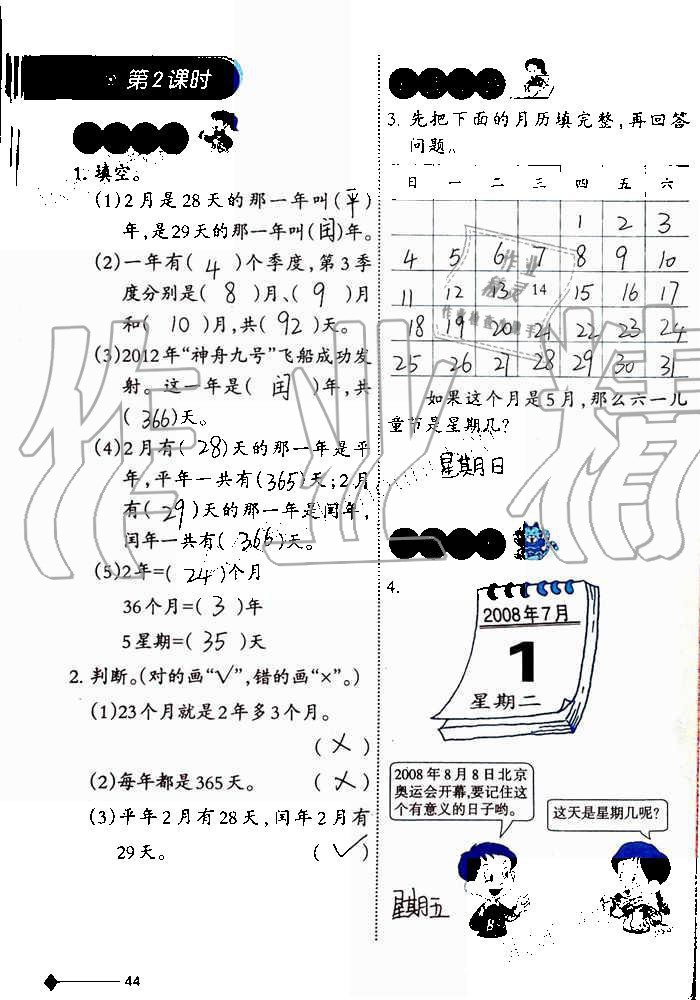 第2课时
1. 填空。
(1)2月是28天的那一年叫(平)
年,是29天的那一年叫(闰)年。
(2)一年有( 4 )个季度,第3季
度分别是( 8 )月、( 9 )月
和( 10 )月,共( 92 )天。
(3)2012年“神舟九号”飞船成功发
射。这一年是( 闰 )年,共
(366)天。
(4)2月有( 28 )天的那一年是平
年,平年一共有(365)天;2月
有( 29 )天的那一年是闰年,
闰年一共有( 366 )天。
(5)2年=( 24 )个月
36个月=( 3 )年
5星期=( 35 )天
2. 判断。(对的画“√”,错的画“×”。)
(1)23个月就是2年多3个月。
( × )
(2)每年都是365天。 ( × )
(3)平年2月有28天,闰年2月有
29天。 ( √ )
44
3. 先把下面的月历填完整,再回答
问题。
日 一 二 三 四 五 六
1 2 3
4 5 6 7 8 9 10
11 12 13 14 15 16 17
18 19 20 21 22 23 24
25 26 27 28 29 30 31
如果这个月是5月,那么六一儿
童节是星期几?
星期日
4.
2008年7月
1
星期二
2008年8月8日北京
奥运会开幕,要记住这
个有意义的日子哟。
这天是星期几呢?
星期五
作业精
作业
精灵